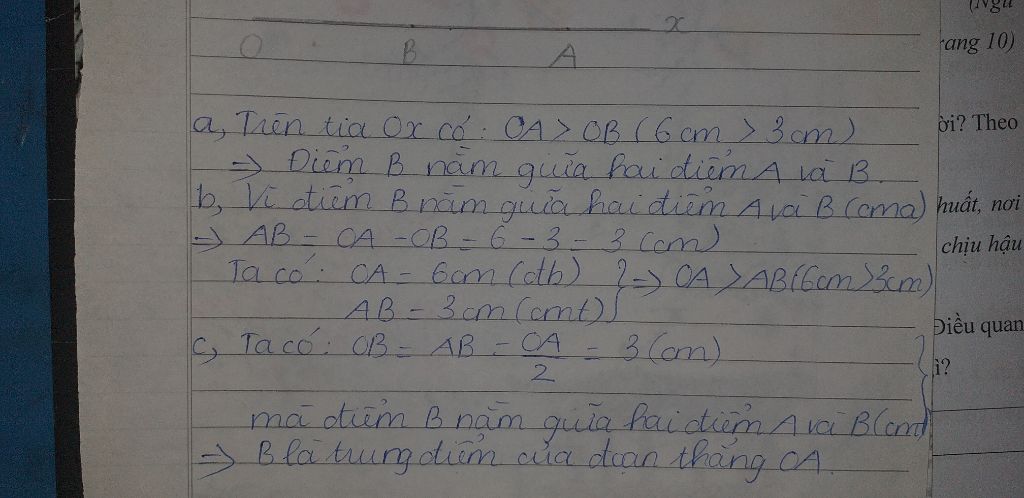 (Ngữ
x
rang 10)
O B A
a, Trên tia Ox có: OA > OB (6cm > 3cm)
ời? Theo
=> Điểm B nằm giữa hai điểm A và B.
b, Vì điểm B nằm giữa hai điểm A và B (cma)
huất, nơi
=> AB = OA - OB = 6 - 3 = 3 (cm)
chịu hậu
Ta có: OA = 6cm (đtb) } => OA > AB (6cm > 3cm)
AB = 3cm (cmt)
Điều quan
c, Ta có: OB = AB = OA/2 = 3 (cm)
ì?
mà điểm B nằm giữa hai điểm A và B (cmt)
=> B là trung điểm của đoạn thẳng OA.